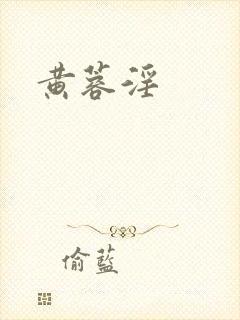 黄蓉淫
偷藍